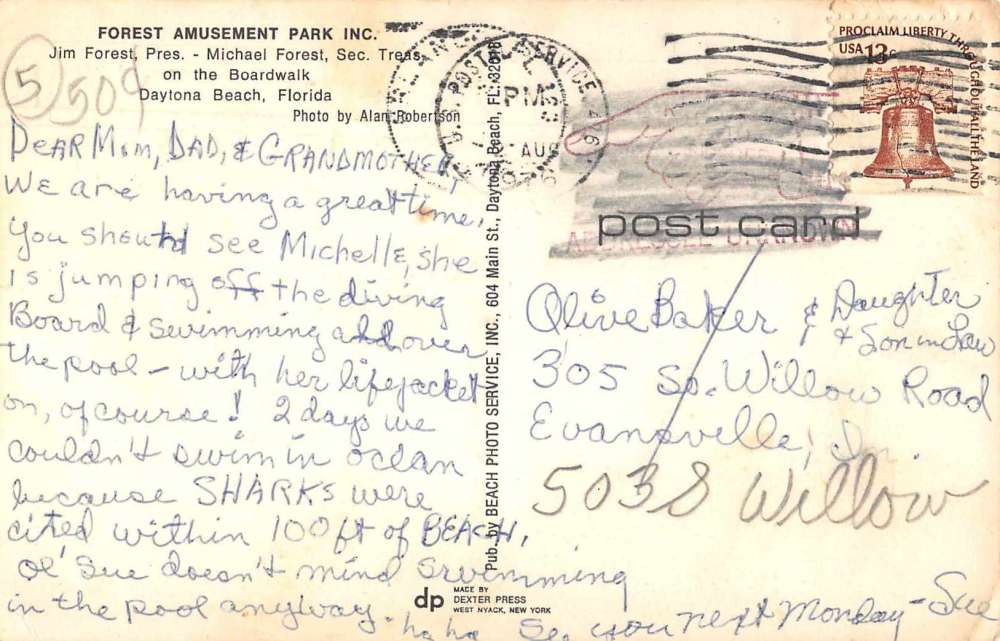 FOREST AMUSEMENT PARK INC.
Jim Forest, Pres. - Michael Forest, Sec. Treas.
on the Boardwalk
Daytona Beach, Florida
Photo by Alan Robertson
5
509
DEAR MOM, DAD, & GRANDMOTHER,
We are having a great time.
You should see Michelle, she
is jumping off the diving
Board & swimming all over
the pool - with her lifejacket
on, of course! 2 days we
couldn't swim in ocean
because SHARKS were
cited within 100 ft of BEACH.
Ol' Sue doesn't mind swimming
in the pool anyway. ha ha See you next Monday - Sue
Pub. by BEACH PHOTO SERVICE, INC., 604 Main St., Daytona Beach, FL. 32018
dp
MADE BY
DEXTER PRESS
WEST NYACK, NEW YORK
POSTAL SERVICE
PM
AUG
PROCLAIM LIBERTY THROUGHOUT ALL THE LAND
USA 13c
post card
ADDRESSEE UNKNOWN
Olive Baker & Daughter
& Son in Law
305 So. Willow Road
Evansville, In.
503 S Willow